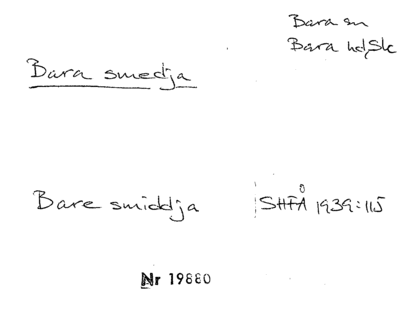 Bara sn
Bara hd, Sk
Bara smedja
Bare smiddja
SHFÅ 1939:115
Nr 19880